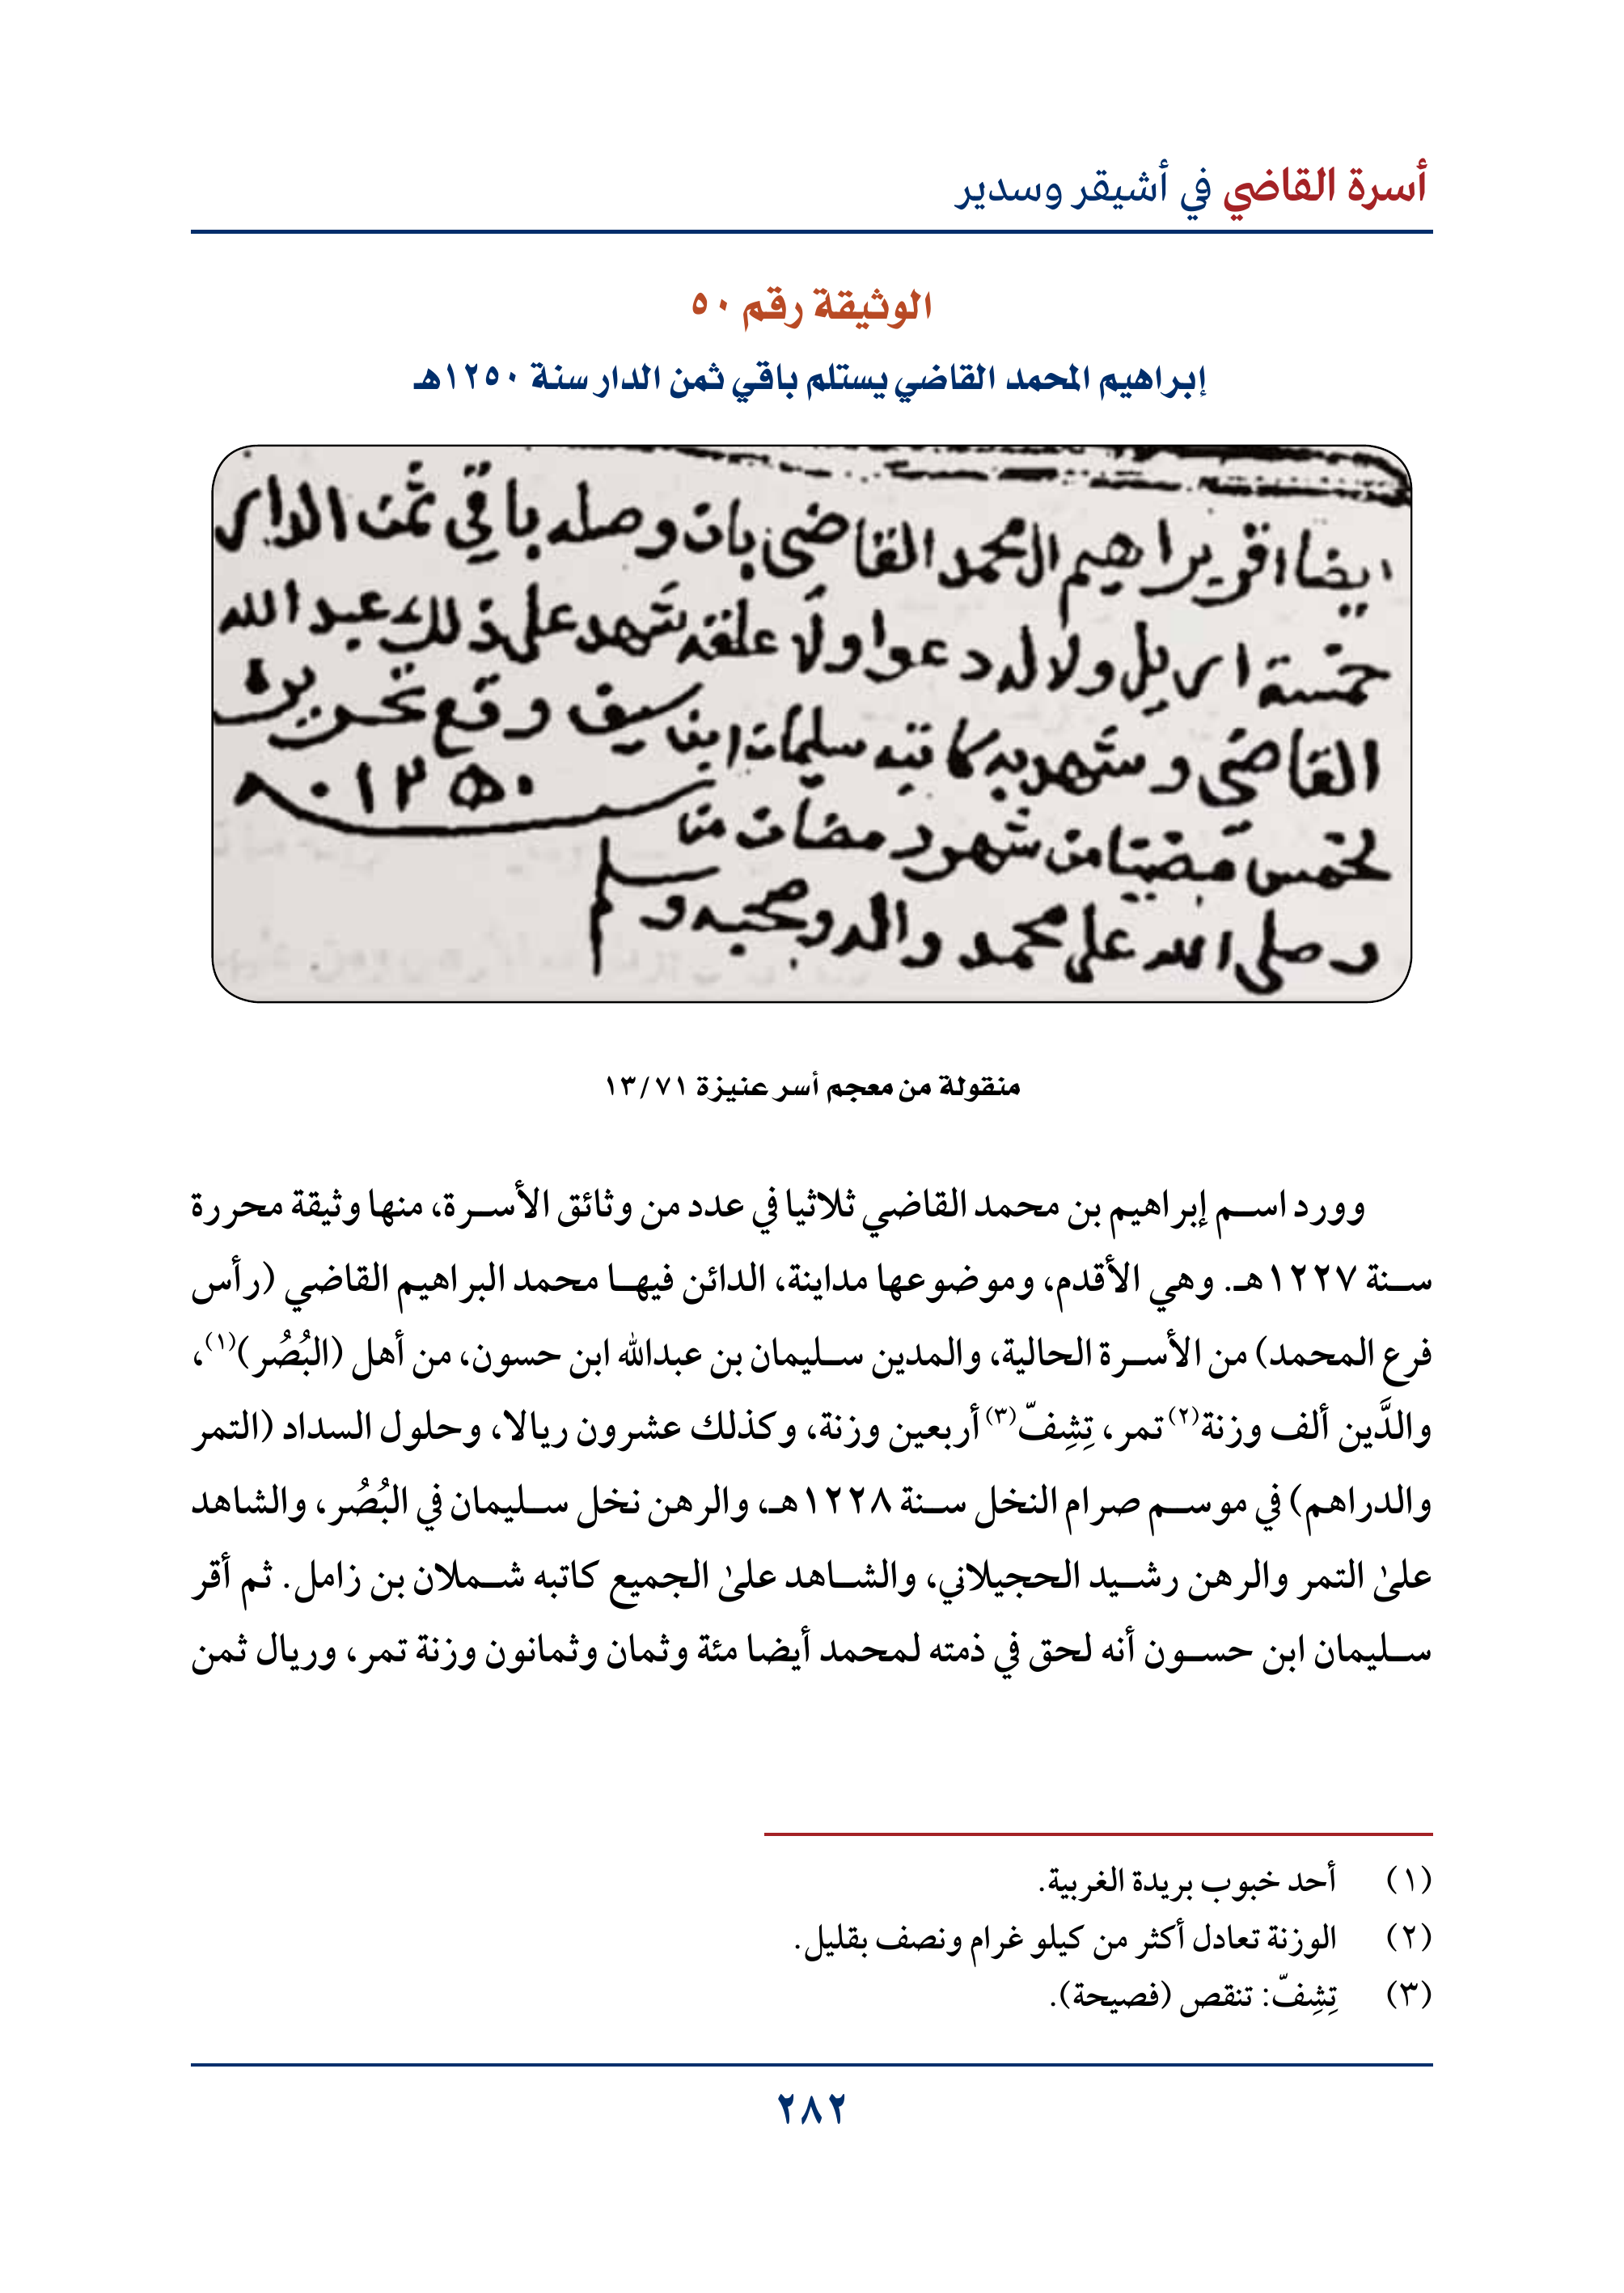 أسرة القاضي في أشيقر وسدير
الوثيقة رقم ٥٠
إبراهيم المحمد القاضي يستلم باقي ثمن الدار سنة ١٢٥٠هـ
ايضا اقر براهيم المحمد القاضي بان وصله باقي ثمن الدار
خمسة اريل ولا له دعوا ولا علقه شهد على ذلك عبد الله
القاضي وشهد به كاتبه سليمان ابن سيف وقع تحريره
لخمس مضيتا من شهر رمضان من ١٢٥٠
وصلى الله على محمد واله وصحبه وسلم
منقولة من معجم أسر عنيزة ١٣/٧١
وورد اسم إبراهيم بن محمد القاضي ثلاثيا في عدد من وثائق الأسرة، منها وثيقة محررة
سنة ١٢٢٧هـ. وهي الأقدم، وموضوعها مداينة، الدائن فيها محمد البراهيم القاضي (رأس
فرع المحمد) من الأسرة الحالية، والمدين سليمان بن عبدالله ابن حسون، من أهل (البُصُر)(١)،
والدَّين ألف وزنة(٢) تمر، تِشِفّ(٣) أربعين وزنة، وكذلك عشرون ريالا، وحلول السداد (التمر
والدراهم) في موسم صرام النخل سنة ١٢٢٨هـ، والرهن نخل سليمان في البُصُر، والشاهد
علىٰ التمر والرهن رشيد الحجيلاني، والشاهد علىٰ الجميع كاتبه شملان بن زامل. ثم أقر
سليمان ابن حسون أنه لحق في ذمته لمحمد أيضا مئة وثمان وثمانون وزنة تمر، وريال ثمن
(١) أحد خبوب بريدة الغربية.
(٢) الوزنة تعادل أكثر من كيلو غرام ونصف بقليل.
(٣) تِشِفّ: تنقص (فصيحة).
٢٨٢